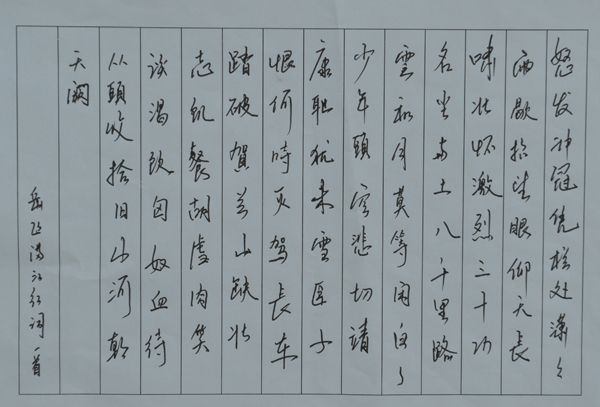 怒发冲冠凭栏处潇々
雨歇抬望眼仰天長
啸壮怀激烈三十功
名尘与土八千里路
雲和月莫等闲白了
少年頭空悲切靖
康耻犹未雪臣子
恨何时灭驾長车
踏破賀兰山缺壮
志飢餐胡虏肉笑
谈渴饮匈奴血待
从頭收拾旧山河朝
天阙
岳飞满江红词一首